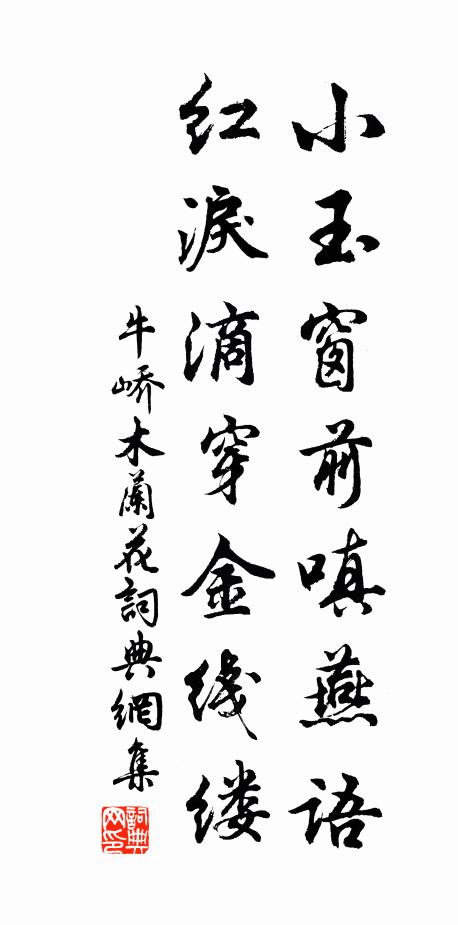 小玉窗前嗔燕语
红淚滴穿金线缕
牛峤木蘭花詞典網集
詞典网印